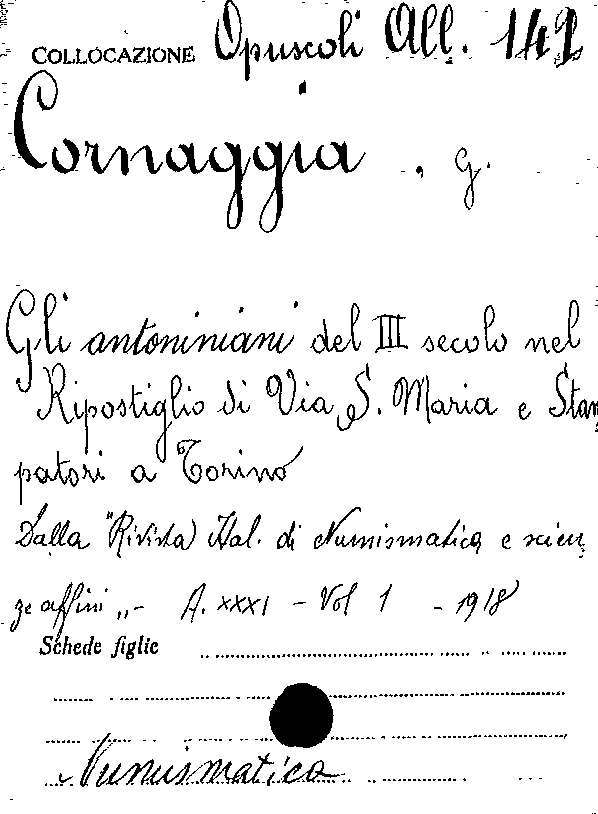 COLLOCAZIONE Opuscoli All. 142
Cornaggia, G.
Gli antoniniani del III secolo nel
Ripostiglio di Via S. Maria e Stam
patori a Torino
Dalla "Rivista Ital. di Numismatica e scien
ze affini „- A. XXXI - Vol 1 - 1918
Schede figlie
Numismatica